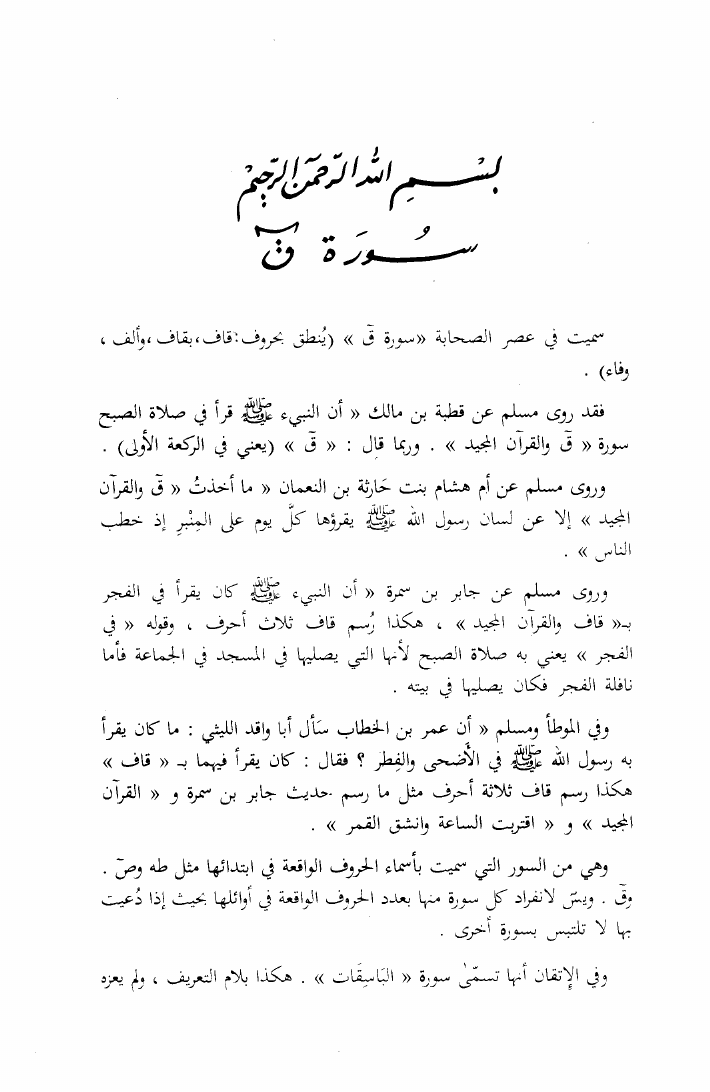 بسم الله الرّحمن الرّحيم
سُورَة قٓ
سميت في عصر الصحابة «سورة قٓ » (يُنطق بحروف: قاف، بقاف، وألف ،
وفاء) .
فقد روى مسلم عن قطبة بن مالك « أن النبيء ﷺ قرأ في صلاة الصبح
سورة « قٓ والقرآن المجيد » . وربما قال : « قٓ » (يعني في الركعة الأولى) .
وروى مسلم عن أم هشام بنت حَارثة بن النعمان « ما أخذتُ « قٓ والقرآن
المجيد » إلا عن لسان رسول الله ﷺ يقرؤها كلَّ يوم على المِنْبرِ إذ خطب
الناس » .
وروى مسلم عن جابر بن سمرة « أن النبيء ﷺ كان يقرأ في الفجر
بـ« قاف والقرآن المجيد » ، هكذا رُسم قاف ثلاث أحرف ، وقوله « في
الفجر » يعني به صلاة الصبح لأنها التي يصليها في المسجد في الجماعة فأما
نافلة الفجر فكان يصليها في بيته .
وفي الموطأ ومسلم « أن عمر بن الخطاب سَأل أبا واقد الليثي : ما كان يقرأ
به رسول الله ﷺ في الأَضحى والفِطر ؟ فقال : كان يقرأ فيهما بـ « قاف »
هكذا رسم قاف ثلاثة أحرف مثل ما رسم حديث جابر بن سمرة و « القرآن
المجيد » و « اقتربت الساعة وانشق القمر » .
وهي من السور التي سميت بأسماء الحروف الواقعة في ابتدائها مثل طه وصٓ .
وقٓ . ويسٓ لانفراد كل سورة منها بعدد الحروف الواقعة في أوائلها بحيث إذا دُعيت
بها لا تلتبس بسورة أخرى .
وفي الإِتقان أنها تسمّىٰ سورة « البَاسِقَات » . هكذا بلام التعريف ، ولم يعزه